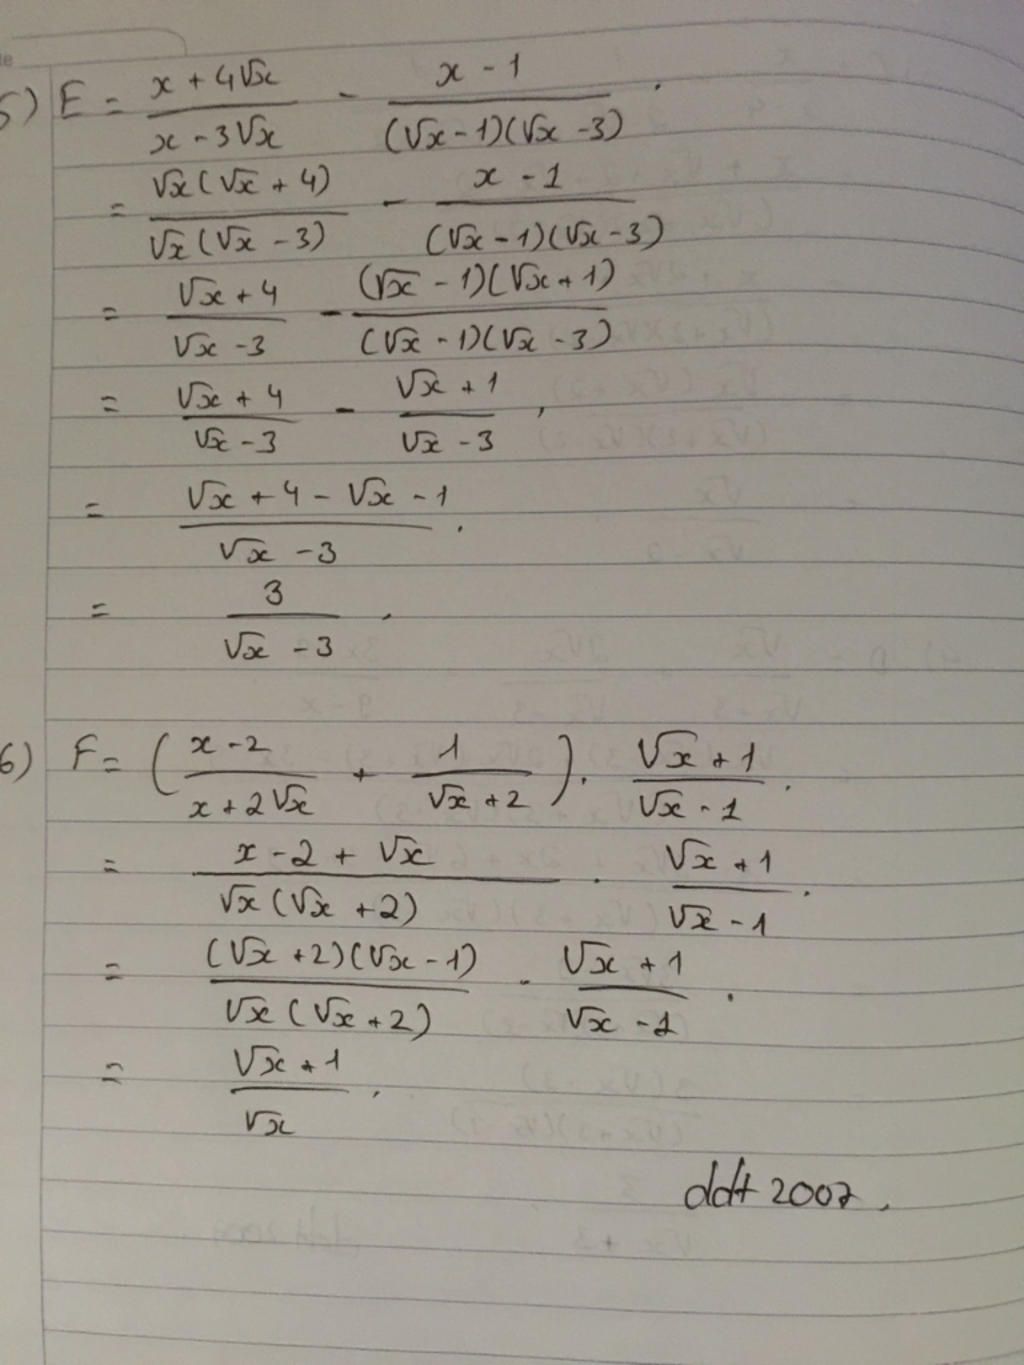 5) E = (x + 4√x)/(x - 3√x) - (x - 1)/((√x - 1)(√x - 3)).
= (√x(√x + 4))/(√x(√x - 3)) - (x - 1)/((√x - 1)(√x - 3))
= (√x + 4)/(√x - 3) - ((√x - 1)(√x + 1))/((√x - 1)(√x - 3))
= (√x + 4)/(√x - 3) - (√x + 1)/(√x - 3),
= (√x + 4 - √x - 1)/(√x - 3).
= 3/(√x - 3).
6) F = ((x - 2)/(x + 2√x) + 1/(√x + 2)) . (√x + 1)/(√x - 1).
= (x - 2 + √x)/(√x(√x + 2)) . (√x + 1)/(√x - 1).
= ((√x + 2)(√x - 1))/(√x(√x + 2)) . (√x + 1)/(√x - 1).
= (√x + 1)/√x.
ddt 2007.